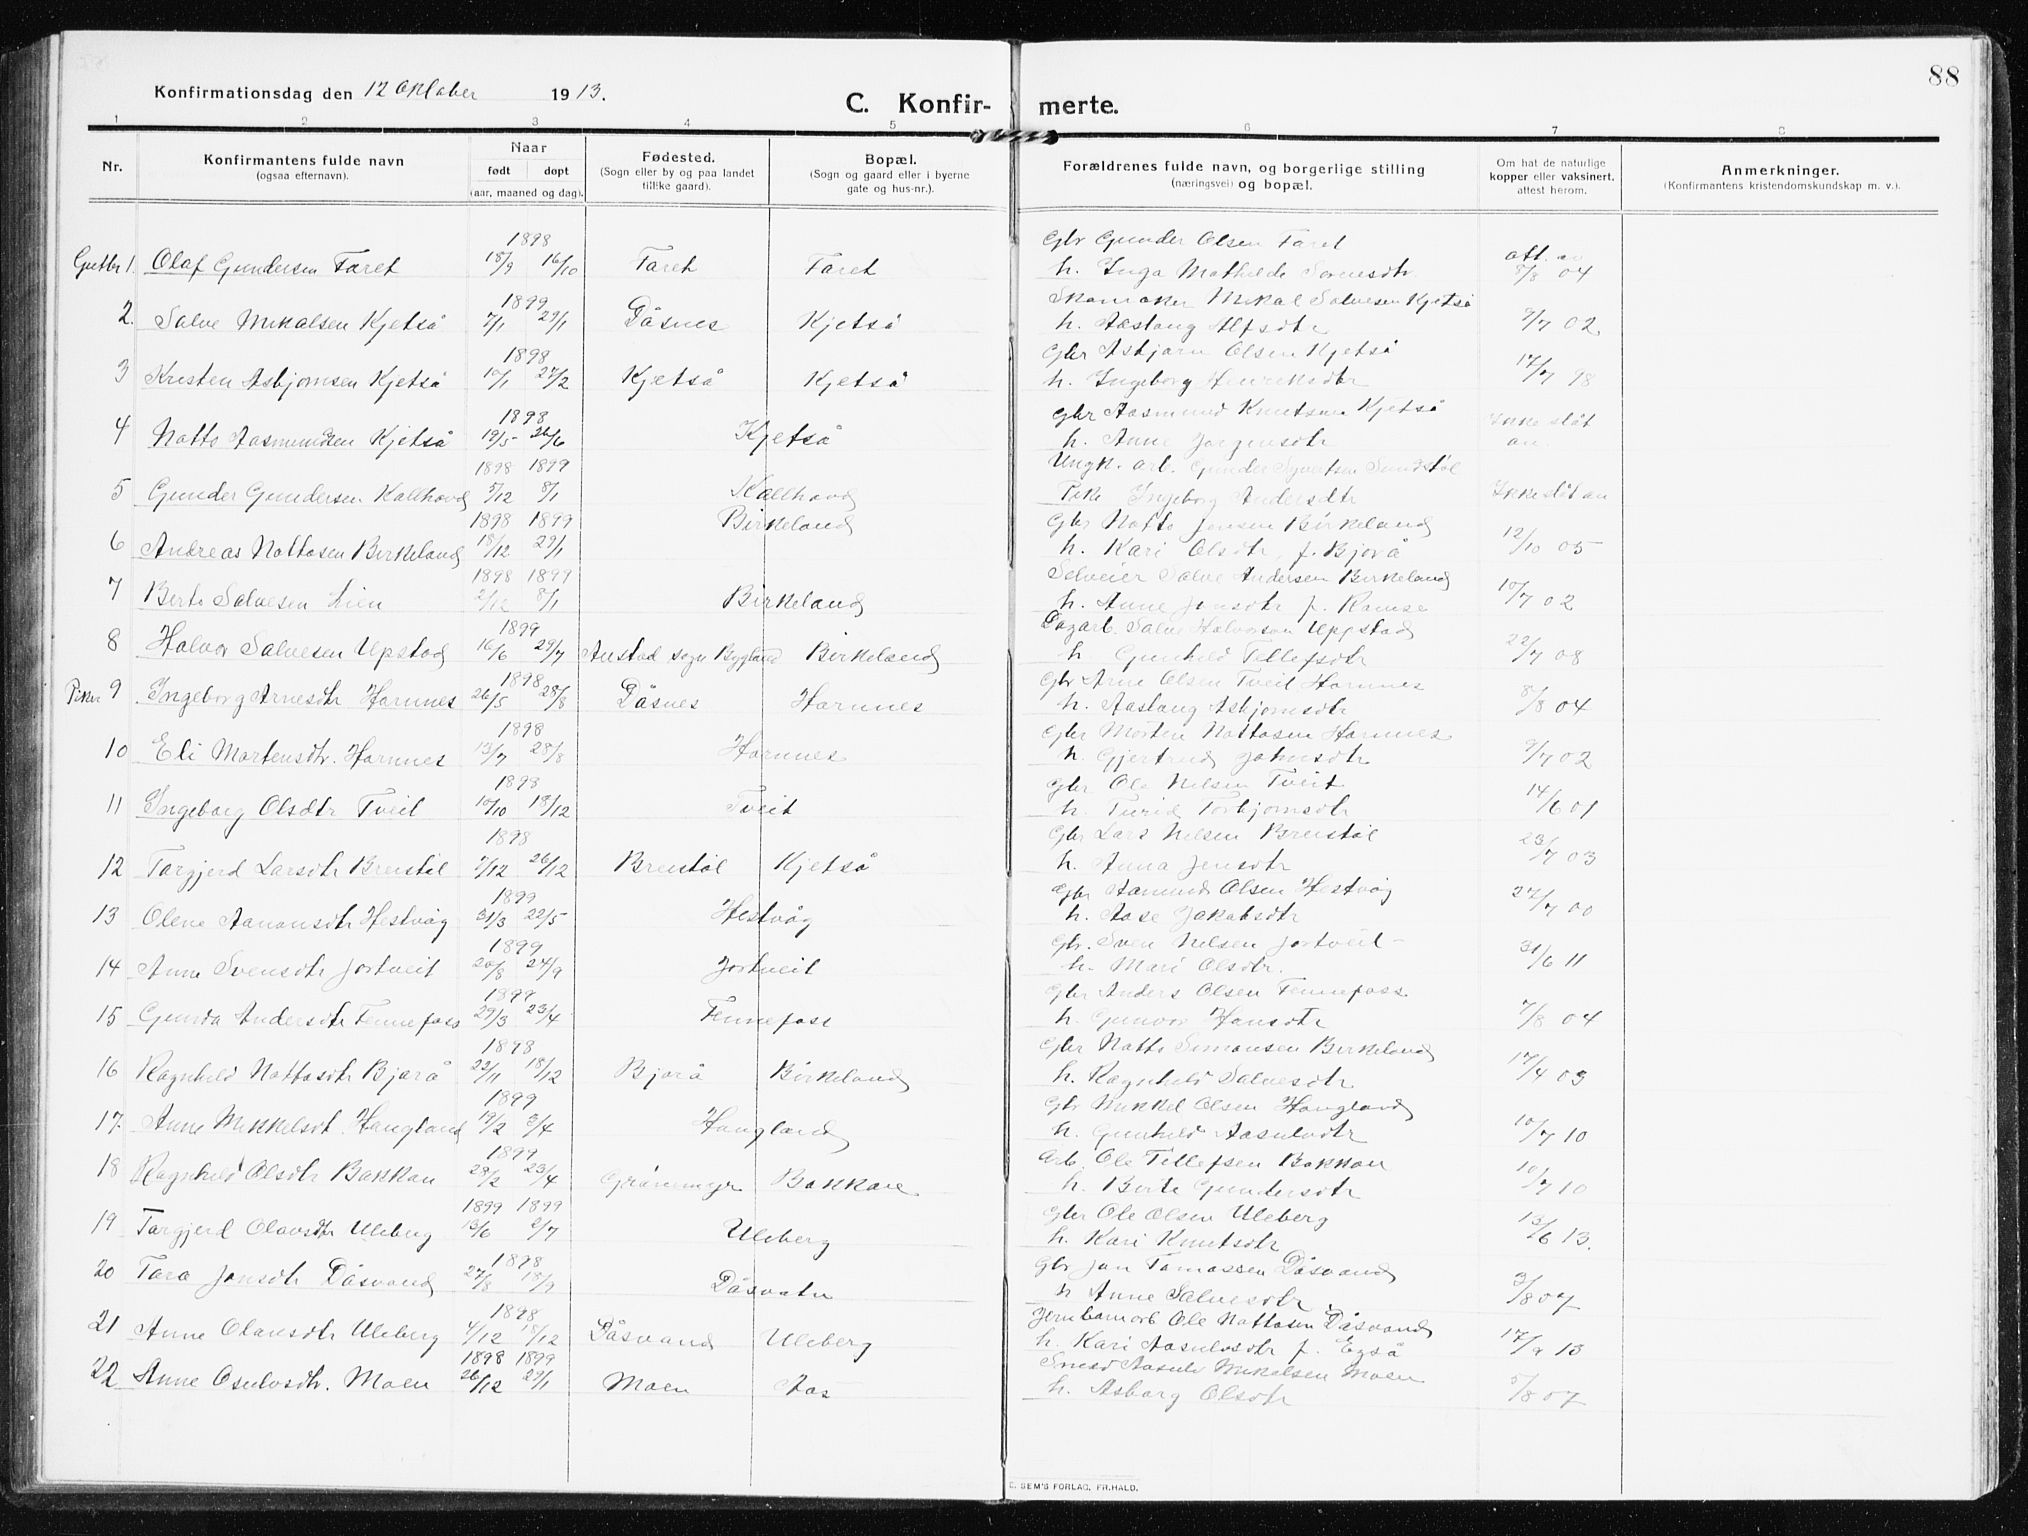 88
Konfirmationsdag den 12 Oktober 1913.
C. Konfir- merte.
1 2 3 4 5 6 7 8
Nr. Konfirmantens fulde navn (ogsaa efternavn). Naar født døpt (aar, maaned og dag). Fødested. (Sogn eller by og paa landet tillike gaard). Bopæl. (Sogn og gaard eller i byerne gate og hus-nr.). Forældrenes fulde navn, og borgerlige stilling (næringsvei) og bopæl. Om hat de naturlige kopper eller vaksinert, attest herom. Anmerkninger. (Konfirmantens kristendomskundskap m. v.).
1898 Gbr Gunder Olsen Faret
Gutter 1. Olaf Gundersen Faret 18/9 16/10 Faret Faret h. Inga Mathilde att. av 8/8 04
1899 Skomaker Mikal Salvesen Kjetså
2. Salve Mikalsen Kjetså 7/1 29/1 Dåsnes Kjetså h. Aaslaug Alfsdtr 9/7 02
1898 Gbr Asbjørn Olsen Kjetså
3 Kristen Asbjørnsen Kjetså 10/1 27/2 Kjetså Kjetså h. Ingeborg Henriksdtr 17/7 98
1898 Gbr Aasmund Knutsen Kjetså
4 Notto Aasmundsen Kjetså 19/5 26/6 Kjetså h. Anne Jørgensdtr Ikke slåt an.
1898 1899 Ungk. arb. Gunder Syvertsen
5 Gunder Gundersen Kallhovd 5/12 8/1 Kallhovd Pike Ingeborg Andersdtr Ikke slåt an
1898 1899 Gbr Notto Jensen Birkeland
6 Andreas Nottosen Birkeland 18/12 29/1 Birkeland h. Kari Olsdtr, f. Bjorå 12/10 05
1898 1899 Selveier Salve Andersen Birkeland
7 Berte Salvesen Lien 2/12 8/1 Birkeland h. Anne Jensdtr f. Ramse 10/7 02
1899 Dagarb. Salve Halvorsen Uppstad
8 Halvor Salvesen Upstad 16/6 29/7 Austad sogn Bygland Birkeland h Gunhild Tellefsdtr 22/7 08
1898 Gbr Arne Olsen Tveit Hornnes
Piker 9 Ingeborg Arnesdtr Hornnes 26/5 28/8 Dåsnes Hornnes h. Aaslaug Asbjørnsdtr 8/8 04
1898 Gbr Morten Nottosen Hornnes
10 Eli Mortensdtr. Hornnes 13/7 28/8 Hornnes h. Gjertrud Johnsdtr 9/7 02
1898 Gbr Ole Nilsen Tveit
11 Ingeborg Olsdtr Tveit 10/10 18/12 Tveit h. Turid Torbjørnsdtr 14/6 01
1898 Gbr Lars Nilsen Breistøl
12 Torgjerd Larsdtr Breistøl 7/12 26/12 Breistøl Kjetså h. Anna Jensdtr 23/7 03
1899 Gbr Aanund Olsen Hestvåg
13 Olene Aanonsdtr Hestvåg 31/3 22/5 Hestvåg h. Aase Jakobsdtr 27/7 00
1899 Gbr. Sven Nilsen Jortveit
14 Anne Svensdtr Jortveit 20/8 24/9 Jortveit h. Mari Olsdtr. 31/6 11
1899 Gbr Anders Olsen Fennefoss
15 Gunda Andersdtr Fennefoss 29/3 23/4 Fennefoss h. Gunvor Hansdtr 7/8 04
1898 Gbr Notto Simonsen Birkeland
16 Ragnhild Nottosdtr Bjorå 22/11 18/12 Bjorå Birkeland h. Ragnhild Salvesdtr 17/4 03
1899 Gbr Mikkel Olsen Haugland
17. Anne Mikkelsdt. Haugland 19/2 3/4 Haugland h. Gunhild Aasulvdtr 10/7 10
1899 Arb. Ole Tellefsen Bakkan
18 Ragnhild Olsdtr Bakkan 28/2 23/4 Grånemyr Bakkan h. Berte Gundersdtr 10/7 10
1899 1899 Gbr Ole Olsen Uleberg
19 Torgjerd Olavsdtr Uleberg 13/6 2/7 Uleberg h. Kari Knutsdtr 13/6 13.
1898 Gbr Jon Tomassen Dåsvand
20 Tora Jonsdtr Dåsvand 27/8 18/9 Dåsvatn h Anne Salvesdtr 3/8 07
1898 Jernbanarb Ole Nottosen Dåsvand
21 Anne Olavsdtr Uleberg 4/12 18/12 Dåsvand Uleberg h. Kari Aasulvsdtr f. Egså 17/9 13
1898 1899 Aasulv Mikalsen Moen
22 Anne Osulvsdtr. Moen 26/12 29/1 Moen Aas h. Asborg Olsdtr 5/8 07
E. SEM'S FORLAG, FR.HALD.